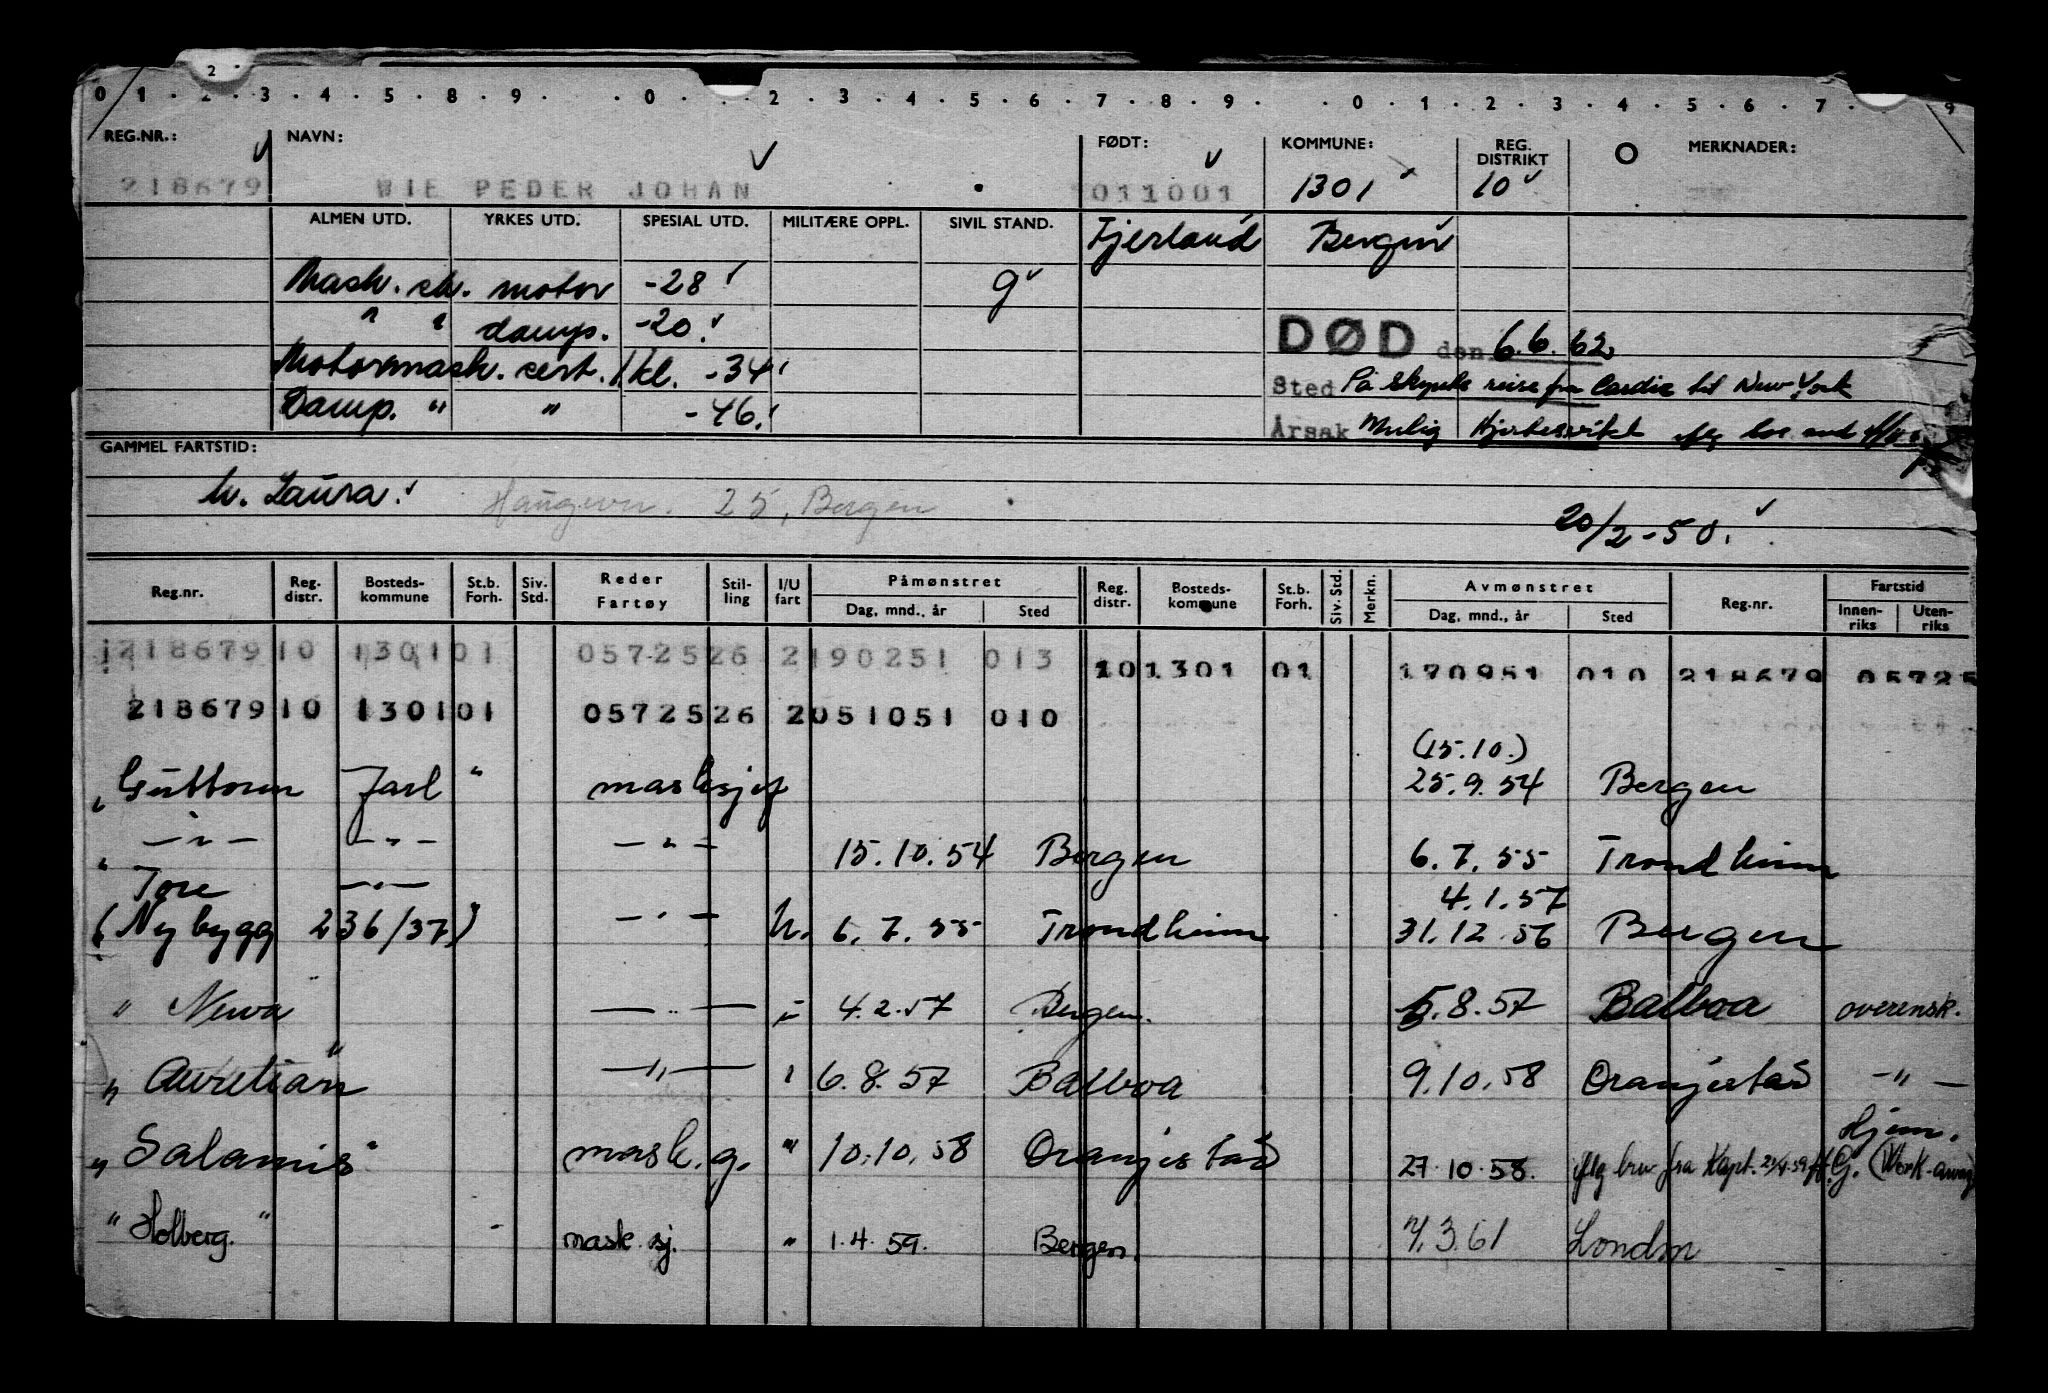 2
0 1 . 2 . 3 . 4 . 5 . 8 . 9 . . 0 . . 2 . 3 . 4 . 5 . 6 . 7 . 8 . 9 . . 0 . 1 . 2 . 3 . 4 . 5 . 6 . 7 . 9
REG.NR.: NAVN: FØDT: KOMMUNE: REG. DISTRIKT MERKNADER:
218679 WIE PEDER JOHAN 011001 1301 10
ALMEN UTD. YRKES UTD. SPESIAL UTD. MILITÆRE OPPL. SIVIL STAND. Fjerland Bergen
Mask. ch. motor -28 g
" " damp. -20
DØD den 6.6.62
Motormask. cert. 1 kl. -34
Sted På Skyros reise fra Cardiz til New York
Damp. " " -46.
Årsak Mulig Hjertesvikt
GAMMEL FARTSTID:
h. Laura. Haugevn. 25, Bergen
20/2-50.
Reg.nr. Reg. distr. Bosteds-kommune St.b. Forh. Siv. Std. Reder Fartøy Stil-ling I/U fart Påmønstret Dag, mnd., år Sted Reg. distr. Bosteds-kommune St.b. Forh. Siv. Std. Merkn. Avmønstret Dag, mnd., år Sted Reg.nr. Fartstid Innen-riks Uten-riks
218679 10 1301 01 05725 26 2 190251 013 10 1301 01 170951 010 218679 05725
218679 10 1301 01 05725 26 2 051051 010
(15.10.)
" Guttorm Jarl " masksjef 25.9.54 Bergen
" — " — — " — — " — 15.10.54 Bergen 6.7.55 Trondheim
" Tore — " — 4.1.57
(Nybygg 236/37) — " — h. 6.7.55 Trondheim 31.12.56 Bergen
" Neva — " — " 4.2.57 Bergen. 5.8.57 Balboa overensk.
" Aurelian " — " — " 6.8.57 Balboa 9.10.58 Oranjestad — " —
Hjem.
" Salamis " mask.g. " 10.10.58 Oranjestad 27.10.58. iflg brev fra Kapt. 21/4-59 G. (Work-away)
" Holberg. " mask.sj. " 1.4.59. Bergen. 7.3.61 London